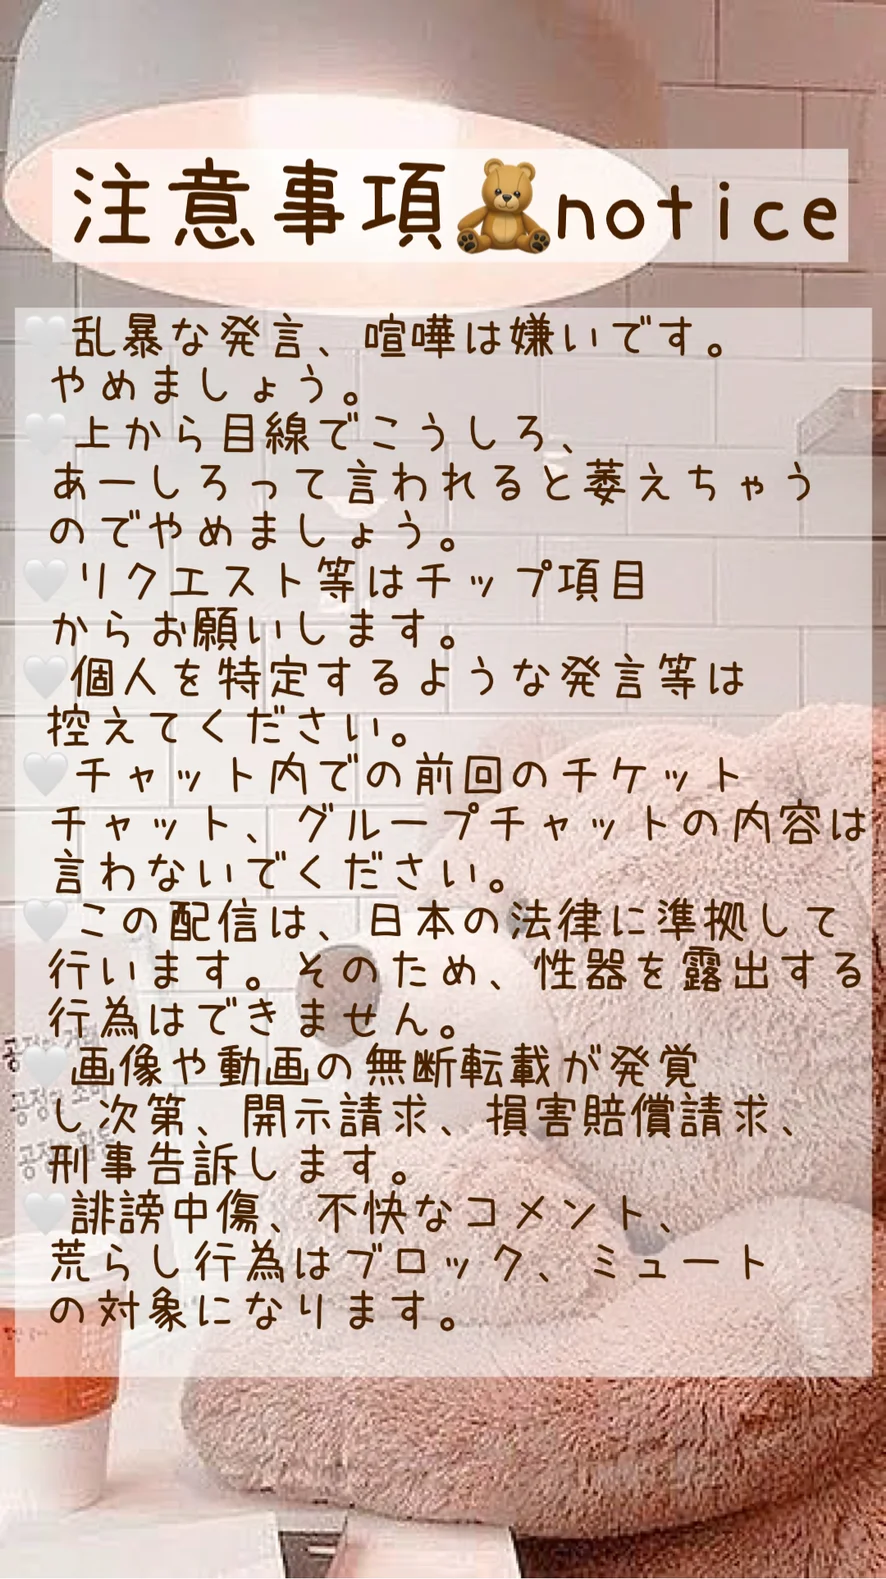 注意事項🧸notice
🤍乱暴な発言、喧嘩は嫌いです。
やめましょう。
🤍上から目線でこうしろ、
あーしろって言われると萎えちゃう
のでやめましょう。
🤍リクエスト等はチップ項目
からお願いします。
🤍個人を特定するような発言等は
控えてください。
🤍チャット内での前回のチケット
チャット、グループチャットの内容は
言わないでください。
🤍この配信は、日本の法律に準拠して
行います。そのため、性器を露出する
行為はできません。
🤍画像や動画の無断転載が発覚
し次第、開示請求、損害賠償請求、
刑事告訴します。
🤍誹謗中傷、不快なコメント、
荒らし行為はブロック、ミュート
の対象になります。